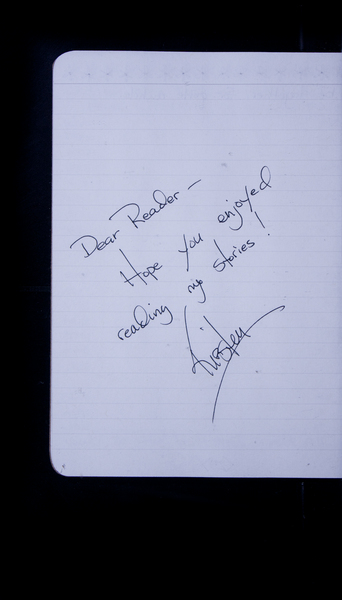 Dear Reader —
Hope you enjoyed
reading my stories!
Kirsten